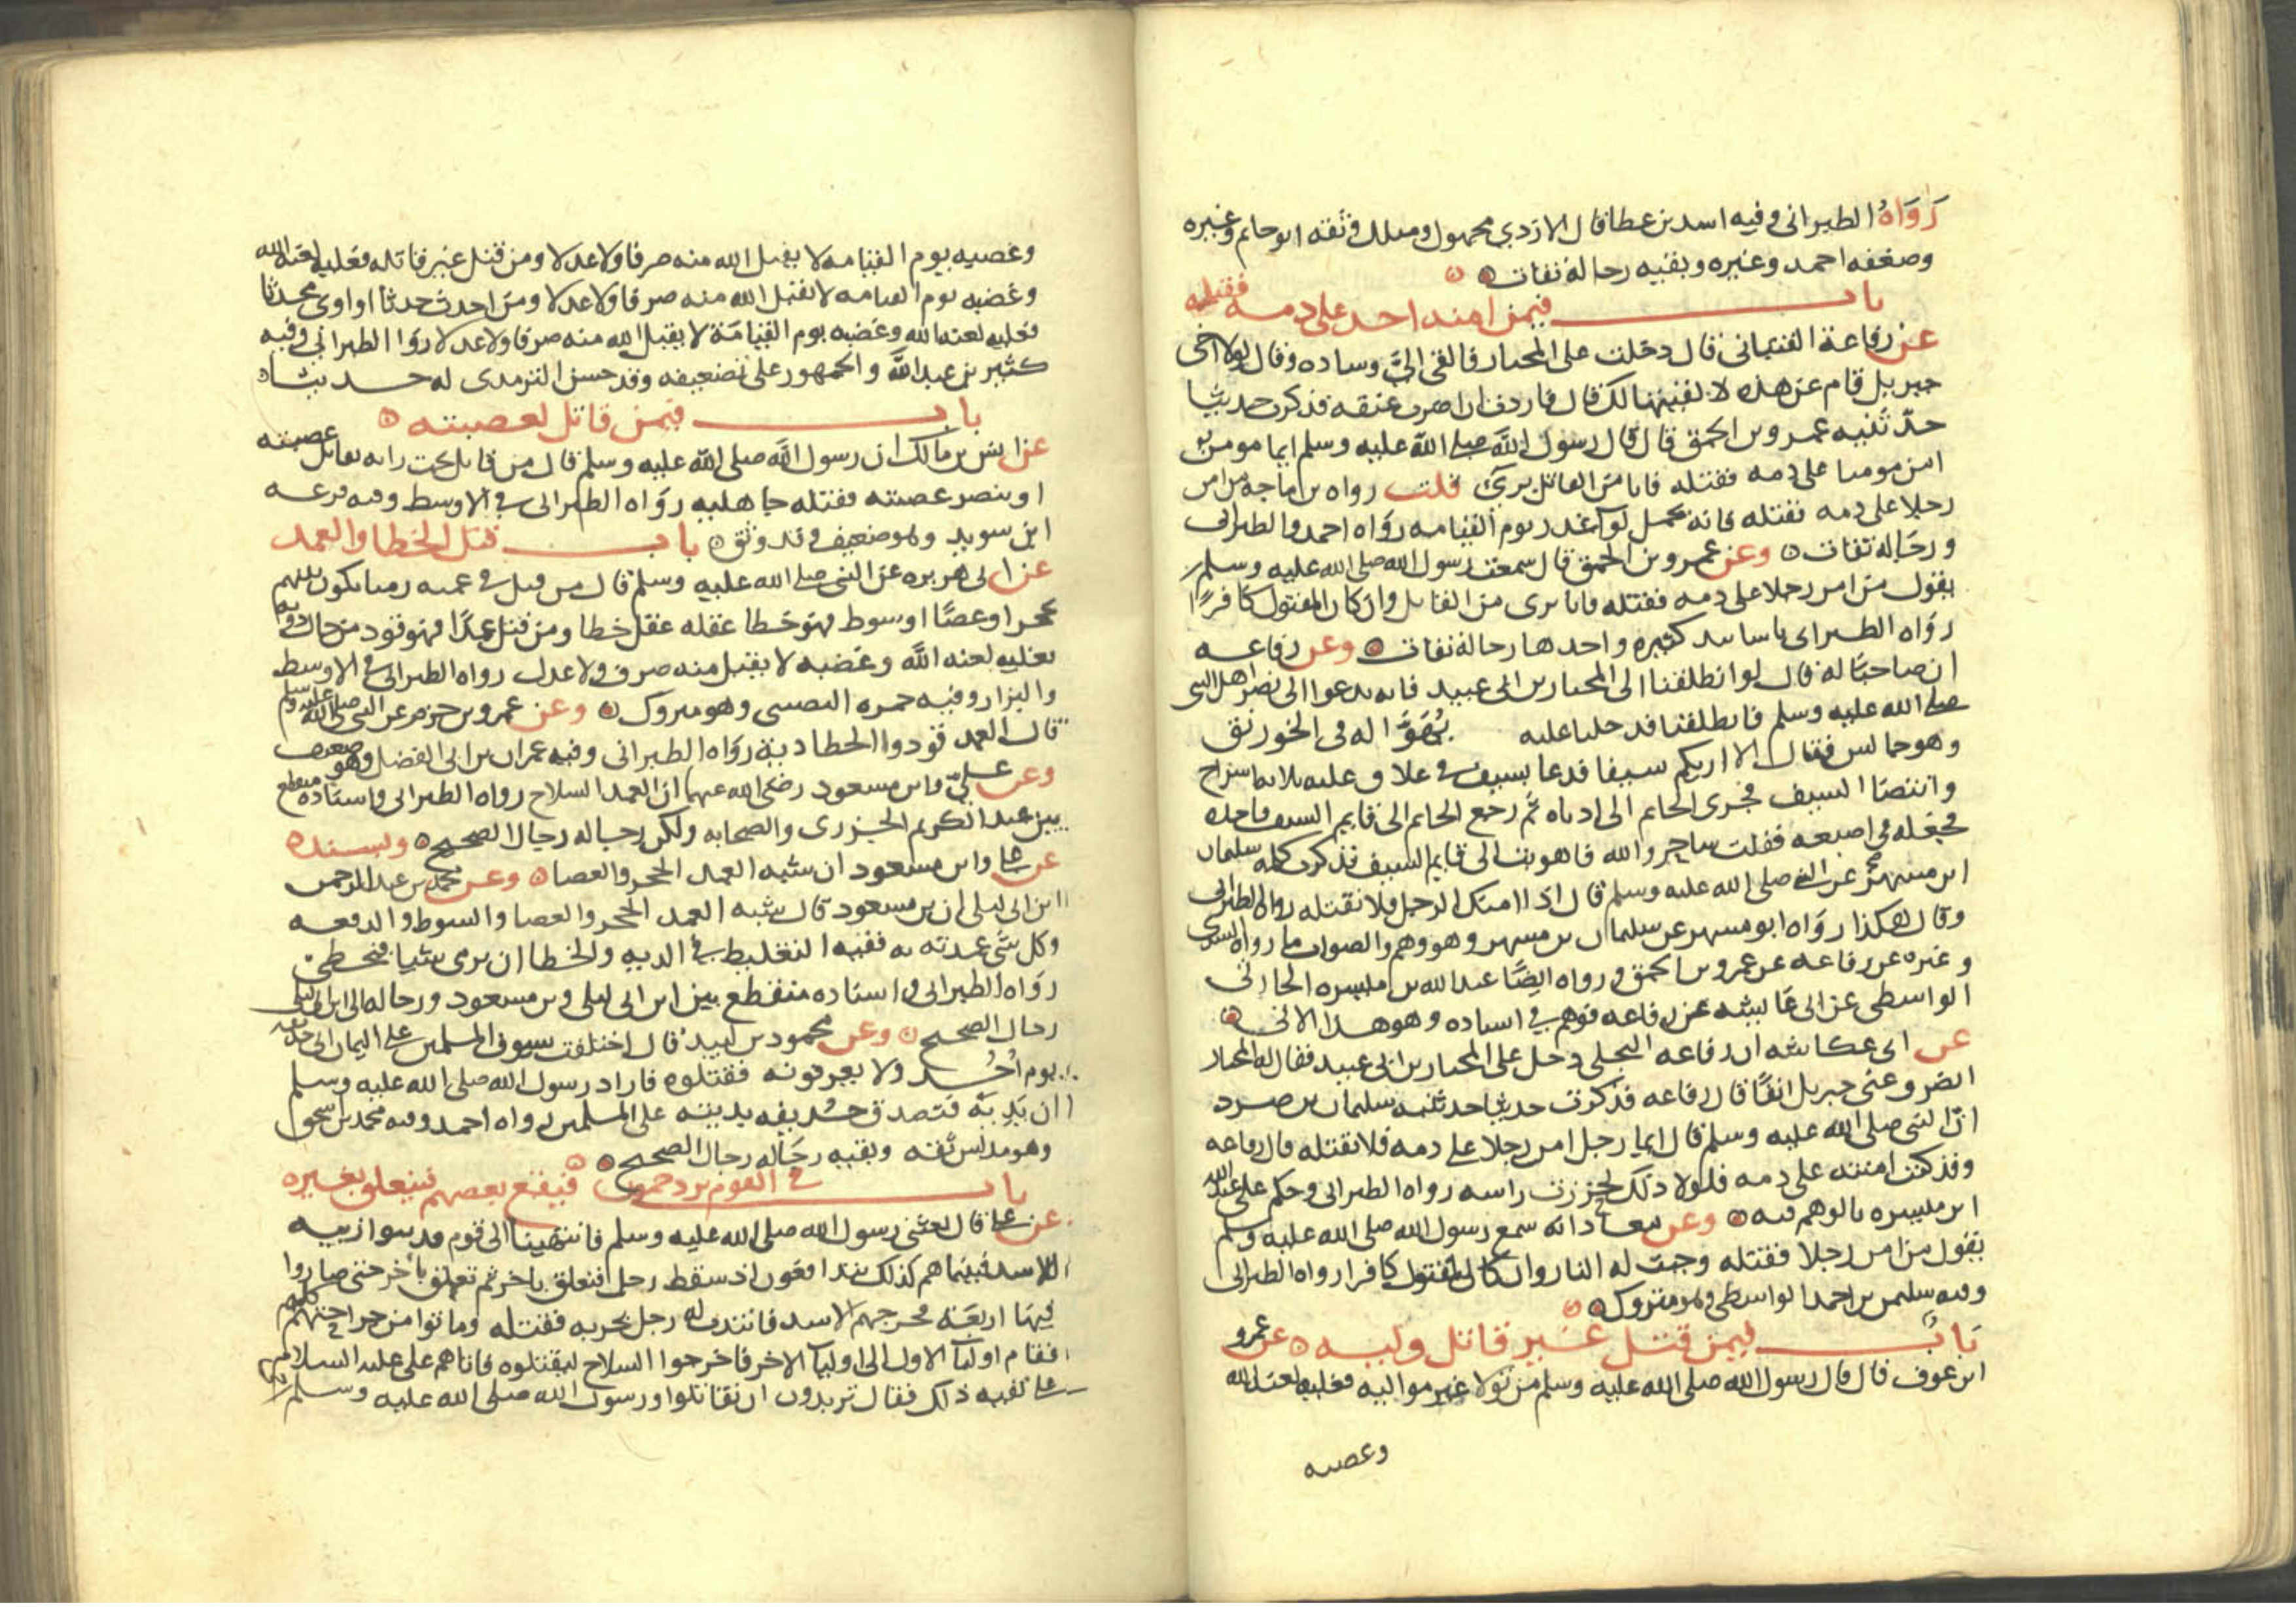 رواه الطبراني وفيه اسد بن عطا قال الازدي مجهول ومندل وثقه ابو حاتم وغيره
وضعفه احمد وغيره وبقيه رجاله ثقات
باب فيمن امنه احد على دمه فقتله
عن رفاعة الفتياني قال دخلت على المختار فالقى الي وساده وقال لولا اخي
جبريل قام عن هذه لالقيتها لك قال فاردت ان اضرب عنقه فذكرت حديثا
حدثنيه عمرو بن الحمق قال قال رسول الله صلى الله عليه وسلم ايما مومن
امن مومنا على دمه فقتله فانا من القاتل بري قلت رواه بن ماجه من امن
رجلا على دمه فقتله فانه يحمل لوا غدر يوم القيامه رواه احمد والطبراني
ورجاله ثقات وعن عمرو بن الحمق قال سمعت رسول الله صلى الله عليه وسلم
يقول من امن رجلا على دمه فقتله فانا بري من القاتل وان كان المقتول كافرا
رواه الطبراني باسانيد كثيره واحدها رجاله ثقات وعن رفاعه
ان صاحبا له قال لو انطلقنا الى المختار بن ابي عبيد فانه يدعوا الى نصر اهل النبي
صلى الله عليه وسلم فانطلقنا فدخلنا عليه بهو له في الخورنق
وهو جالس فقال الا اريكم سيفا فدعا بسيف في علاق وعليه ثلاثه اسراج
وانتضا السيف فجرى الخاتم الى ادناه ثم رجع الخاتم الى قايم السيف فاخذه
فجعله في اصبعه فقلت ساحر والله فاهويت الى قايم السيف فذكرت كلمه سليمان
ابن مسهر عن النبي صلى الله عليه وسلم قال اذا امنك الرجل فلا تقتله رواه الطبراني
وقال هكذا رواه ابو مسهر عن سليمان بن مسهر وهو وهم والصواب ما رواه السدي
وغيره عن رفاعه عن عمرو بن الحمق ورواه ايضا عبد الله بن ميسره الحارثي
الواسطي عن ابي عكاشه عن رفاعه فوهم في اسناده وهو هذا الاتي
عن ابي عكاشه ان رفاعه البجلي دخل على المختار بن ابي عبيد فقال له المختار
انصرف عني جبريل انفا قال رفاعه فذكرت حديثا حدثنيه سليمان بن صرد
ان النبي صلى الله عليه وسلم قال ايما رجل امن رجلا على دمه فلا تقتله قال رفاعه
وقد كنت امنته على دمه فلولا ذلك لحززت راسه رواه الطبراني وحكم على عبد الله
ابن ميسره بالوهم فيه وعن معاذ انه سمع رسول الله صلى الله عليه وسلم
يقول من امن رجلا فقتله وجبت له النار وان كان المقتول كافرا رواه الطبراني
وفيه سليمن بن احمد الواسطي وهو متروك
باب فيمن قتل غير قاتل وليه عن عمرو
ابن عوف قال قال رسول الله صلى الله عليه وسلم من تولا غير مواليه فعليه لعنه الله
وغضبه
وغضبه يوم القيامه لا يقبل الله منه صرفا ولا عدلا ومن قتل غير قاتله فعليه لعنه الله
وغضبه يوم القيامه لا يقبل الله منه صرفا ولا عدلا ومن احدث حدثا او اوى محدثا
فعليه لعنه الله وغضبه يوم القيامة لا يقبل الله منه صرفا ولا عدلا روا الطبراني وفيه
كثير بن عبد الله والجمهور على تضعيفه وقد حسن الترمذي له حديثا
باب فيمن قاتل لعصبته
عن انس بن مالك ان رسول الله صلى الله عليه وسلم قال من قاتل تحت رايه يقاتل عصبته
او ينصر عصبته فقتله جاهليه رواه الطبراني في الاوسط وفيه قزعه
ابن سويد وهو ضعيف وقد وثق باب قتل الخطا والعمد
عن ابي هريره عن النبي صلى الله عليه وسلم قال من قتل في عميه رميا يكون بينهم
بحجر او عصا او سوط فهو خطا عقله عقل خطا ومن قتل عمدا فهو قود من حال دونه
فعليه لعنه الله وغضبه لا يقبل منه صرف ولا عدل رواه الطبراني في الاوسط
والبزار وفيه حمزه النصيبي وهو متروك وعن عمرو بن حزم عن النبي صلى الله عليه وسلم
قال العمد قود والخطا دية رواه الطبراني وفيه عمران بن ابي الفضل وهو ضعيف
وعن علي وابن مسعود رضي الله عنهما ان العمد السلاح رواه الطبراني واسناده منقطع
بين عبد الكريم الجزري والصحابه ولكن رجاله رجال الصحيح وبسنده
عن علي وابن مسعود ان شبه العمد الحجر والعصا وعن محمد بن عبد الرحمن
ابن ابي ليلى ان بن مسعود قال شبه العمد الحجر والعصا والسوط والدفعه
وكل شي عمدته به ففيه التغليظ في الديه والخطا ان يرمى شيا فيخطي
رواه الطبراني واسناده منقطع بين ابن ابي ليلى وبن مسعود ورجاله الى ابن ابي ليلى
رجال الصحيح وعن محمود بن لبيد قال اختلفت سيوف المسلمين على اليمان ابي حذيفه
يوم احد ولا يعرفونه فقتلوه فاراد رسول الله صلى الله عليه وسلم
ان يديه فتصدق حذيفه بديته على المسلمين رواه احمد وفيه محمد بن اسحق
وهو مدلس ثقه وبقيه رجاله رجال الصحيح
باب في القوم يزدحمون فيقع بعضهم فيتعلق بغيره
عن علي قال بعثني رسول الله صلى الله عليه وسلم فانتهينا الى قوم قد بنوا زبيه
للاسد فبينما هم كذلك يتدافعون اذ سقط رجل فتعلق باخر ثم تعلق باخر حتى صاروا
فيها اربعة فجرحهم الاسد فانتدب له رجل بحربه فقتله وماتوا من جراحتهم كلهم
فقام اوليا الاول الى اوليا الاخر فاخرجوا السلاح ليقتتلوه فاتاهم على عليه السلام
على تفيه ذلك فقال تريدون ان تقاتلوا ورسول الله صلى الله عليه وسلم